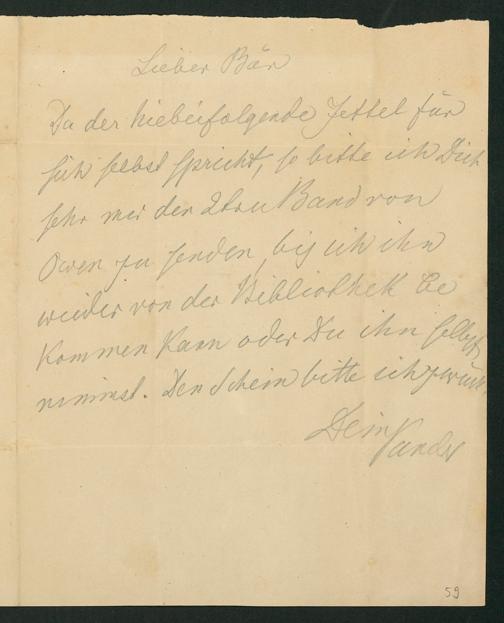 Lieber Bär
Da der hiebeifolgende Zettel für
sich selbst spricht, so bitte ich Dich
sehr mir den 2ten Band von
Owen zu senden, bis ich ihn
wieder von der Bibliothek be
kommen kann oder Du ihn selbst
nimmst. Den Schein bitte ich zurück.
Dein
Pander
59